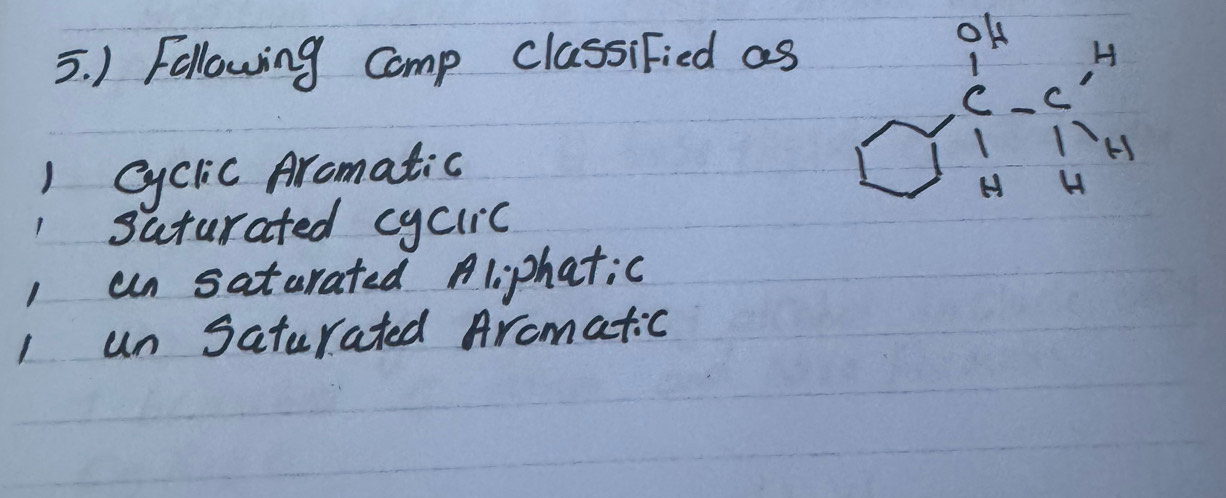 5.) Following Comp classified as
) Cyclic Aromatic
' Saturated cyclic
, un saturated Aliphatic
, un Saturated Aromatic
OH
H
C - C
H
H H